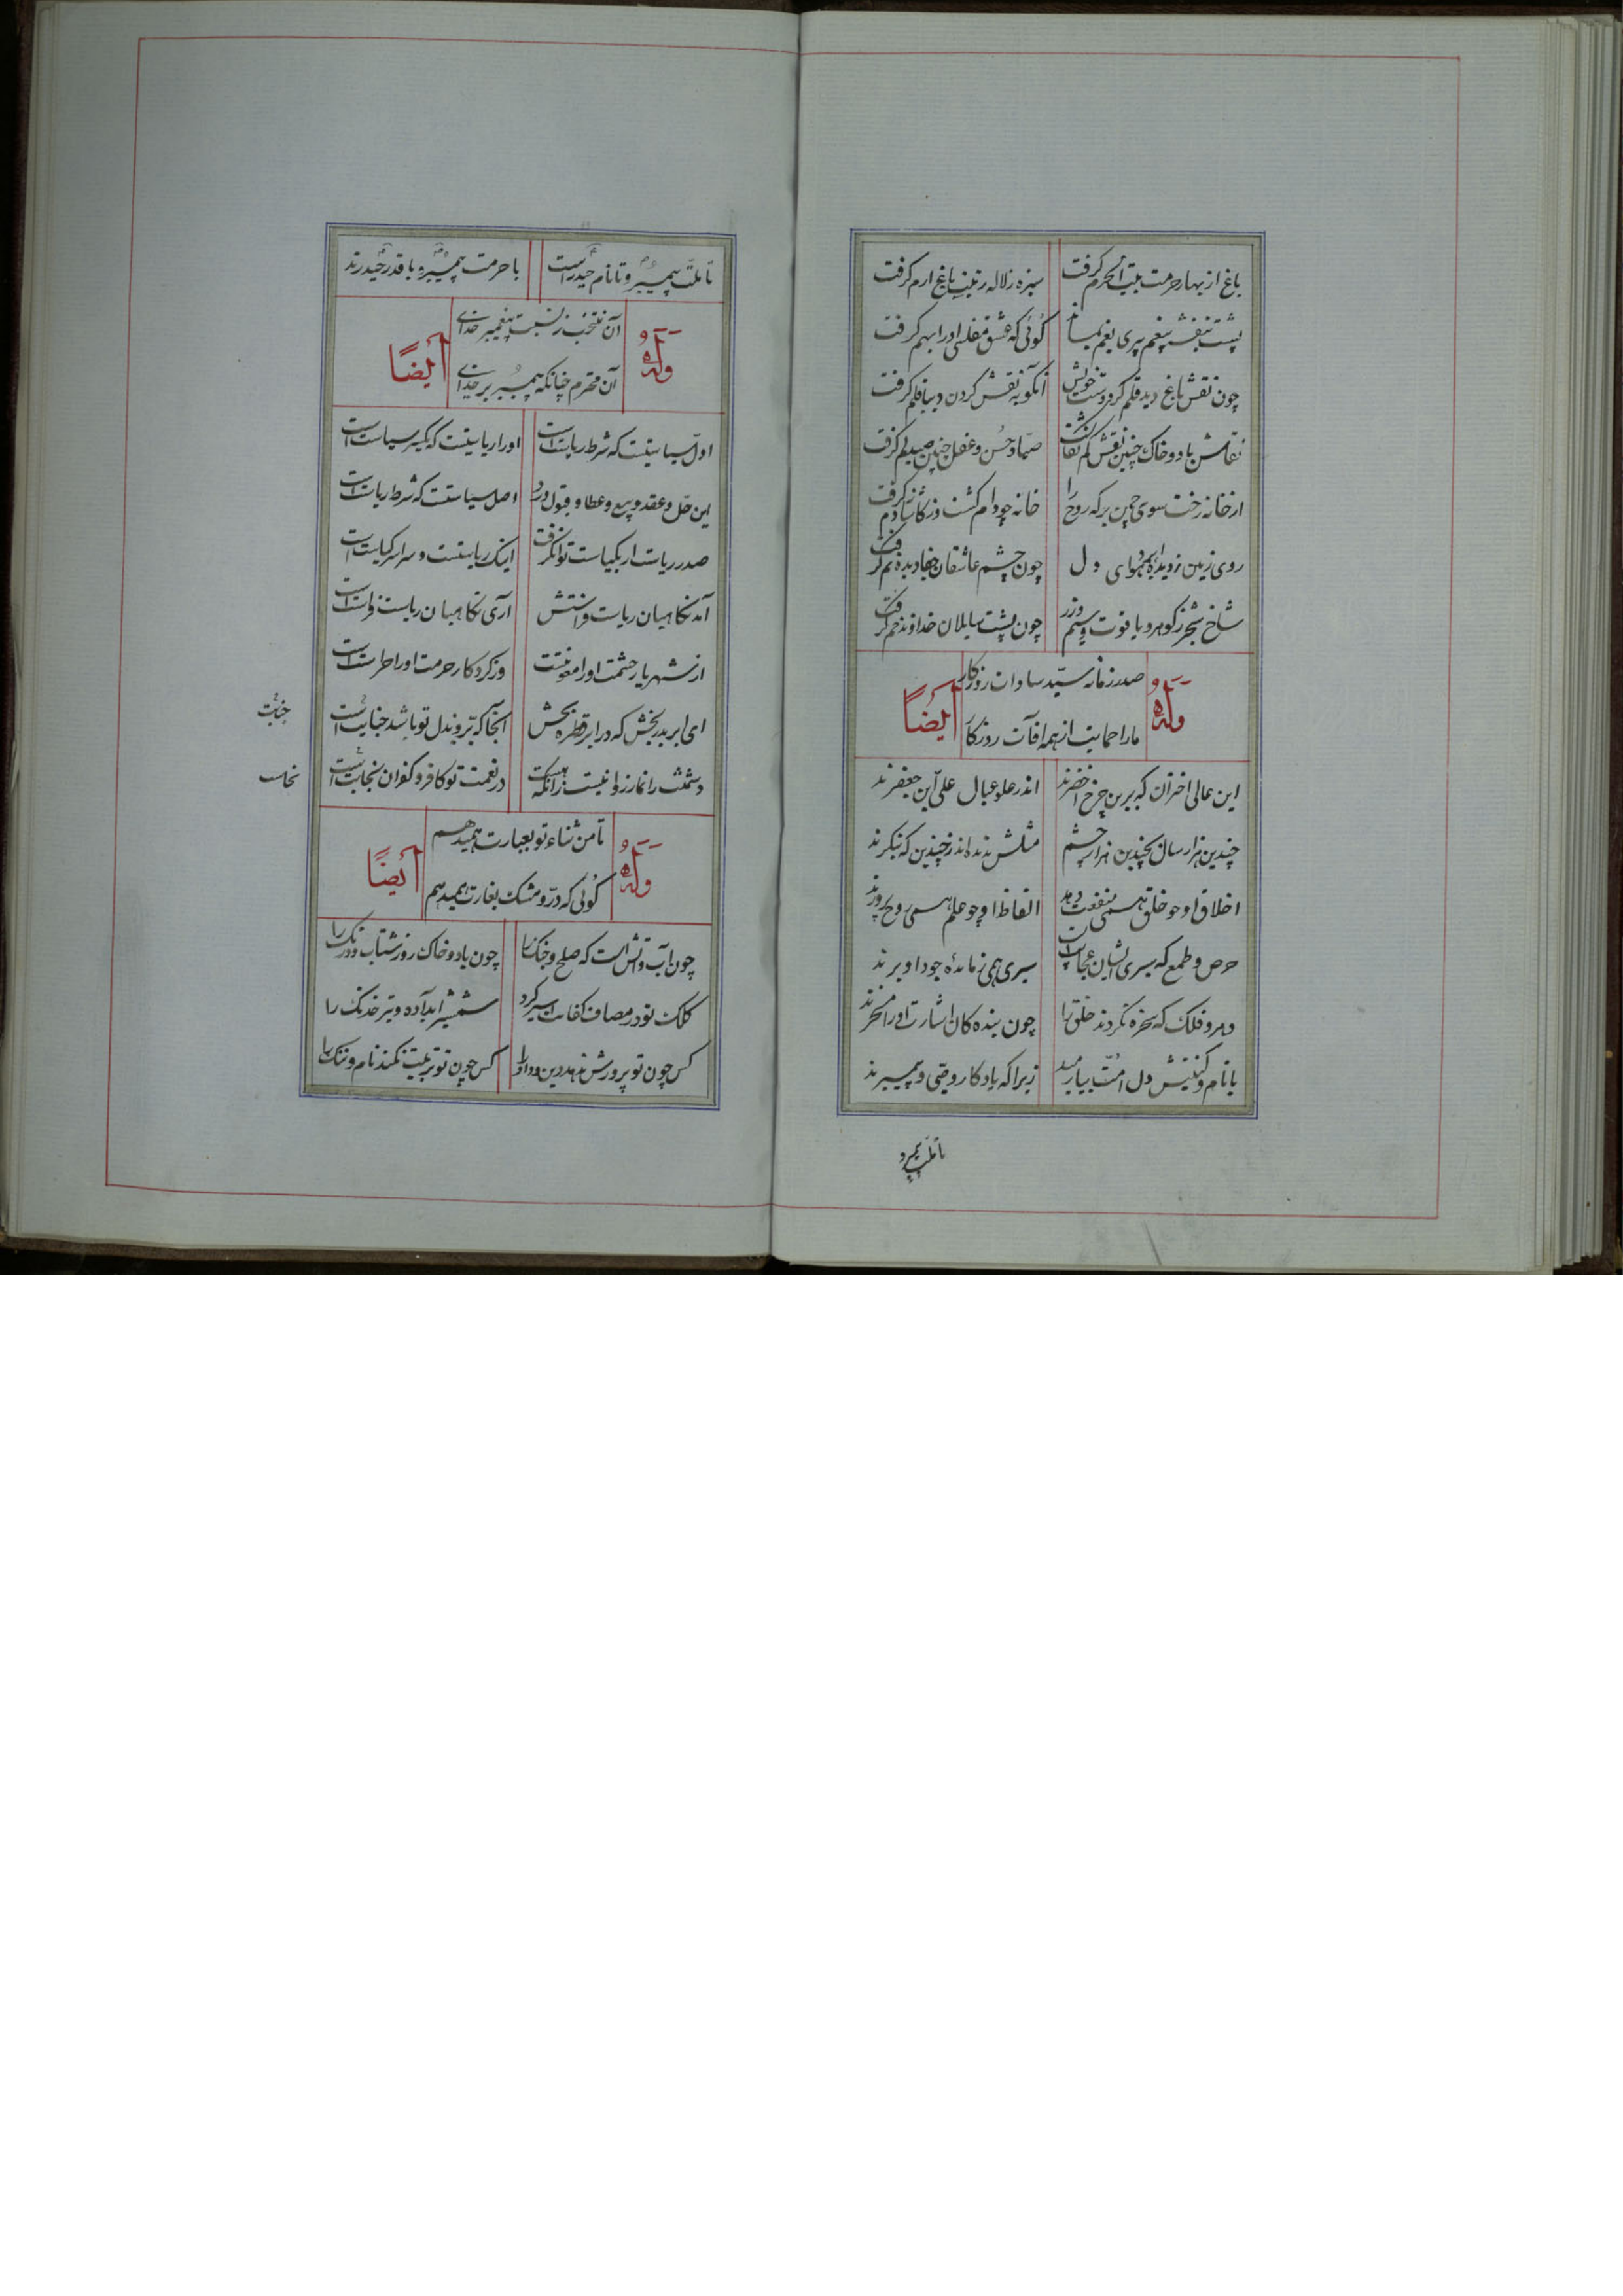 باغ از بهار حرمت بیت الحرم گرفت سبزه ز لاله زینت باغ ارم گرفت
پشت بنفشه بیغم پری بخم بماند گوئی که عشق مفلسی او را بهم گرفت
چون نقش باغ دید قلم کرد دست خویش آنکو به نقش کردن دیبا قلم گرفت
نقاش باد و خاک چنین نقش کم نگاشت صیاد حسن و عقل چنین صید کم گرفت
از خانه رخت سوی چمن بر که روح را خانه چو دام گشت و ز کاشانه دم گرفت
روی زمین ز دیده ابر هوای دل چون چشم عاشقان جفا دیده نم گرفت
شاخ شجر ز گوهر و یاقوت و سیم و زر چون پشت سایلان خداوند خم گرفت
وله صدر زمانه سید سادات روزگار
ایضاً ما را حمایت از همه آفات روزگار
این عالی اختران که برین چرخ اخضرند اندر علو عیال علی آبن جعفرند
چندین هزار سال بچندین هزار چشم مثلش ندیده اند ز چندین که بنگرند
اخلاق او چو خلق همی منفعت دهد الفاظ او چو علم همی روح پرورند
حرص و طمع که سیری ایشان عجایب است سیری همی ز مائده جود او برند
دهر و فلک که سخره نگردند خلق را چون بنده کان اشارت او را مسخرند
با نام و کنیتش دل امت بیارمید زیرا که یادگار وصی و پیمبرند
تا ملت پیمبر و
تا ملت پیمبر و تا نام حیدر است با حرمت پیمبر و با قدر حیدرند
وله آن منتخب ز نسبت پیغمبر خدای
ایضاً آن محترم چنانکه پیمبر بر خدای
اول سیاستیست که شرط ریاست است او را ریاستیست که یکسر سیاست است
این حل و عقد و بیع و عطا و قبول و رد اصل سیاستست که شرط ریاست است
صدر ریاست از بکیاست توان گرفت اینک ریاستست و سراسر کیاست است
آمد نگاهبان ریاست فراستش آری نگاهبان ریاست فراست است
از شهریار حشمت او را معونتست وز کردگار حرمت او را حراست است
ای ابر بدر بخش که در ابر قطره بخش آنجا که بر و بذل تو باشد خباثت است
خباثت
دشمنت را نماز روا نیست زانکه هست در نعمت تو کافر و کفران نجاست است
نجاست
وله تا من ثناء تو بعبارت همیدهم
ایضاً گوئی که در و مشک بغارت همیدهم
چون آب و آتش است که صلح و جنگ را چون باد و خاک روز شتاب و درنگ را
کلک تو در مصاف کفایت اسیر کرد شمشیر آبداده و تیر خدنگ را
کس چون تو پرورش ندهد دین و داد را کس چون تو تربیت نکند نام و ننگ را